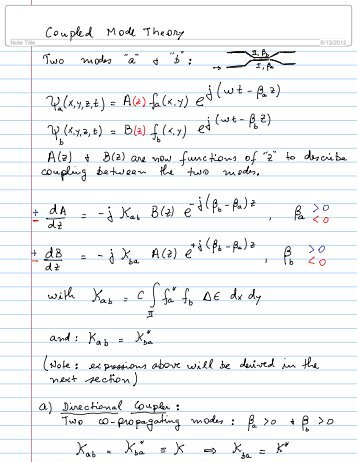 Coupled Mode Theory
Note Title
6/13/2012
Two modes "a" & "b" :
II, β_b
I, β_a
Ψ_a(x,y,z,t) = A(z) f_a(x,y) e^{j(ωt - β_a z)}
Ψ_b(x,y,z,t) = B(z) f_b(x,y) e^{j(ωt - β_b z)}
A(z) & B(z) are now functions of "z" to describe
coupling between the two modes.
± dA/dz = -j K_ab B(z) e^{-j(β_b - β_a)z} , β_a >0 <0
± dB/dz = -j K_ba A(z) e^{+j(β_b - β_a)z} , β_b >0 <0
with K_ab = C ∫_II f_a* f_b Δε dx dy
and : K_ab = K_ba*
(Note : expressions above will be derived in the
next section)
a) Directional Coupler :
Two co-propagating modes : β_a >0 & β_b >0
K_ab = K_ba* ≡ K ⇒ K_ba = K*